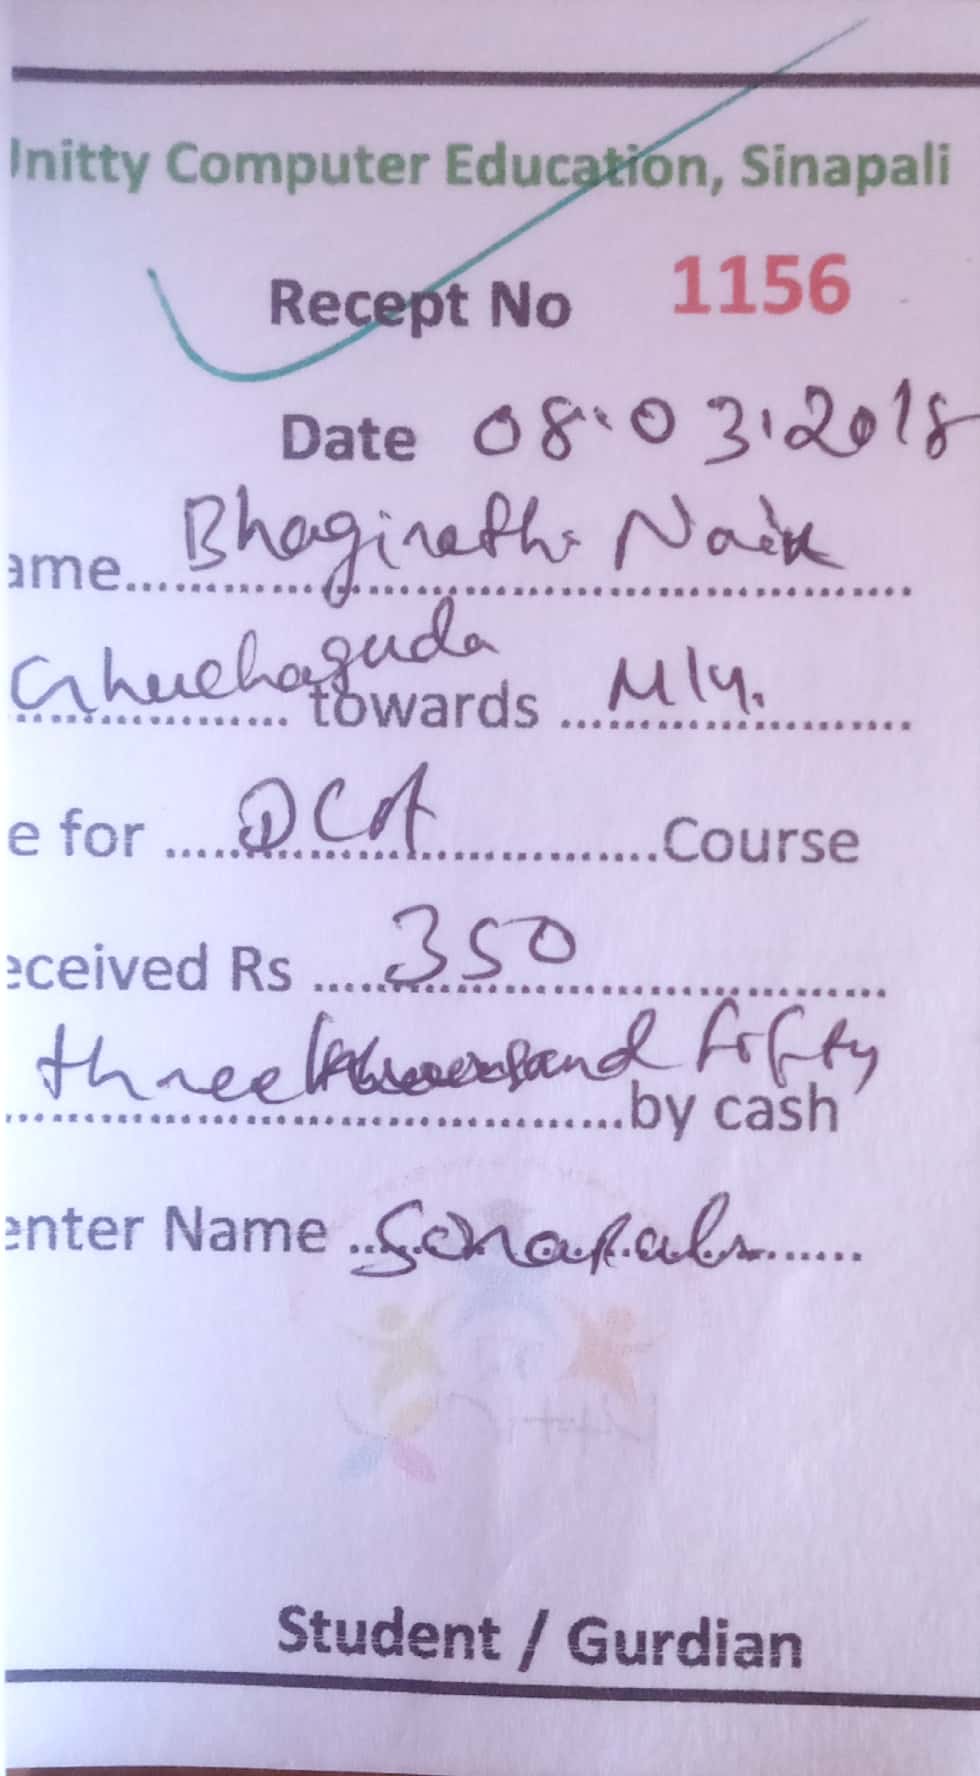 Unitty Computer Education, Sinapali
Recept No 1156
Date 08.03.2018
ame.... Bhagirathi Naik
Ghuchaguda towards Mly.
e for .... DCA ....Course
eceived Rs .... 350
three and fifty
by cash
enter Name .. Sinapali
Student / Gurdian